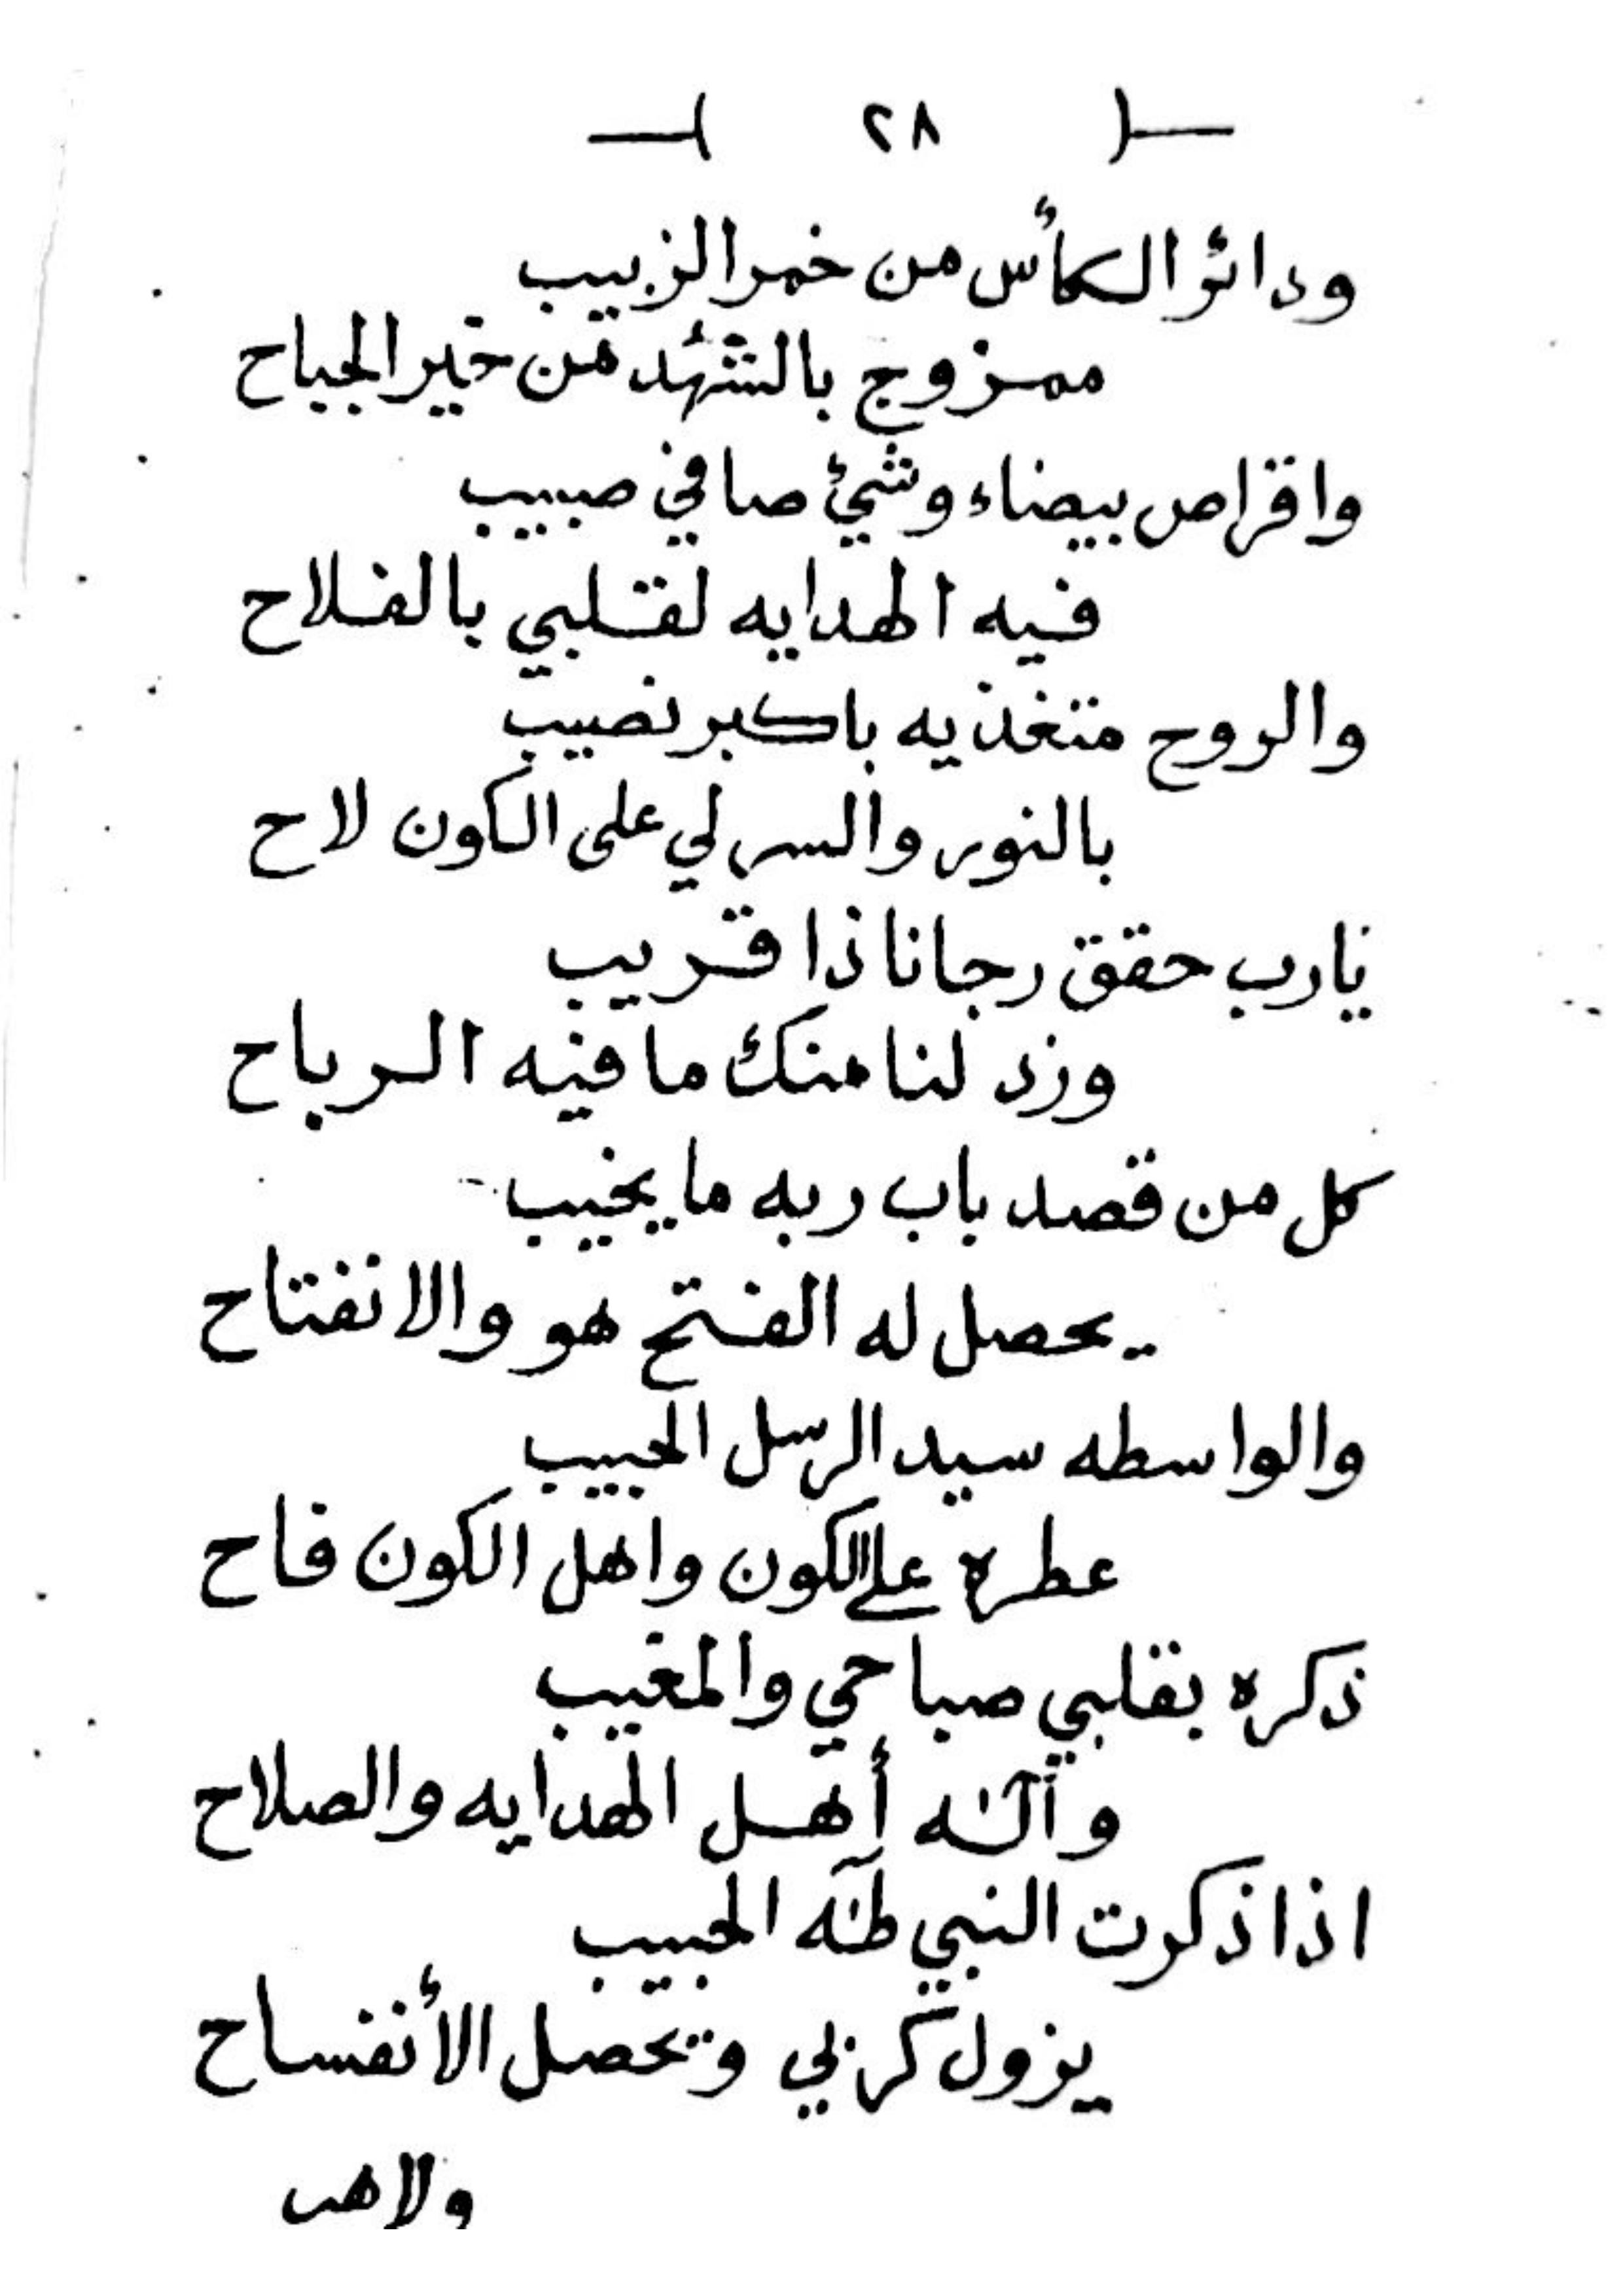 ( ٢٨ )
ودائر الكأس من خمر الزبيب
ممزوج بالشهد من خير الجباح
واقراص بيضاء وشيئ صافي صبيب
فيه الهدايه لقلبي بالفلاح
والروح متغذيه باكبر نصيب
بالنور والسر لي على الكون لاح
يارب حقق رجانا ذا قريب
وزد لنا منك ما فيه الرباح
كل من قصد باب ربه ما يخيب
يحصل له الفتح هو والانفتاح
والواسطه سيد الرسل الحبيب
عطره على الكون واهل الكون فاح
ذكره بقلبي صباحي والمغيب
وآله أهل الهدايه والصلاح
اذا ذكرت النبي طه الحبيب
يزول كربي وتحصل الأنفساح